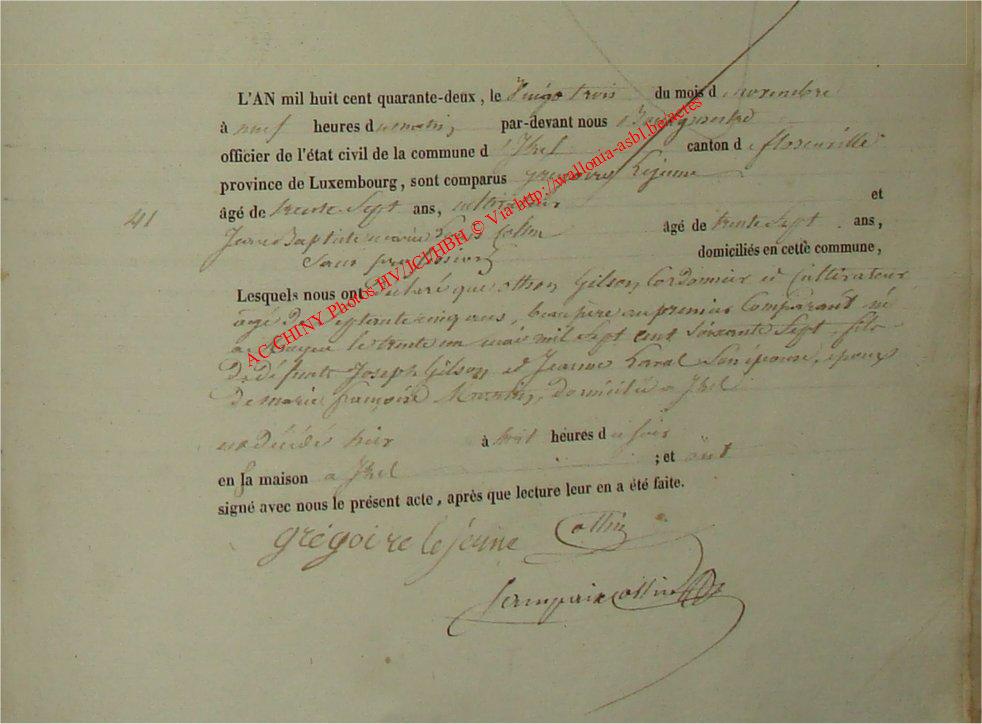 L'AN mil huit cent quarante-deux, le vingt trois du mois d novembre
à neuf heures du matin, par-devant nous Bourgmestre
officier de l'état civil de la commune d'Izel canton de florenville
province de Luxembourg, sont comparus grégoire Lejeune
âgé de trente Sept ans, cultivateur et
41
Jean Baptiste Collin âgé de trente Sept ans,
Sans profession domiciliés en cette commune,
Lesquels nous ont déclaré que othon Gilson Cordonnier et Cultivateur
âgé de Septante cinq ans, beau père au premier Comparant né
a le trente un mai mil Sept cent Soixante Sept fils
De défunts Joseph Gilson et Jeanne Son épouse, époux
De marie françoise domicilié a Izel
est décédé hier à huit heures du soir
en sa maison a Izel ; et ont
signé avec nous le présent acte, après que lecture leur en a été faite.
grégoire lejeune Collin
Lampaix Collin
AC CHINY Photos HV/JCVHBH © Via http://wallonia-asbl.be/actes